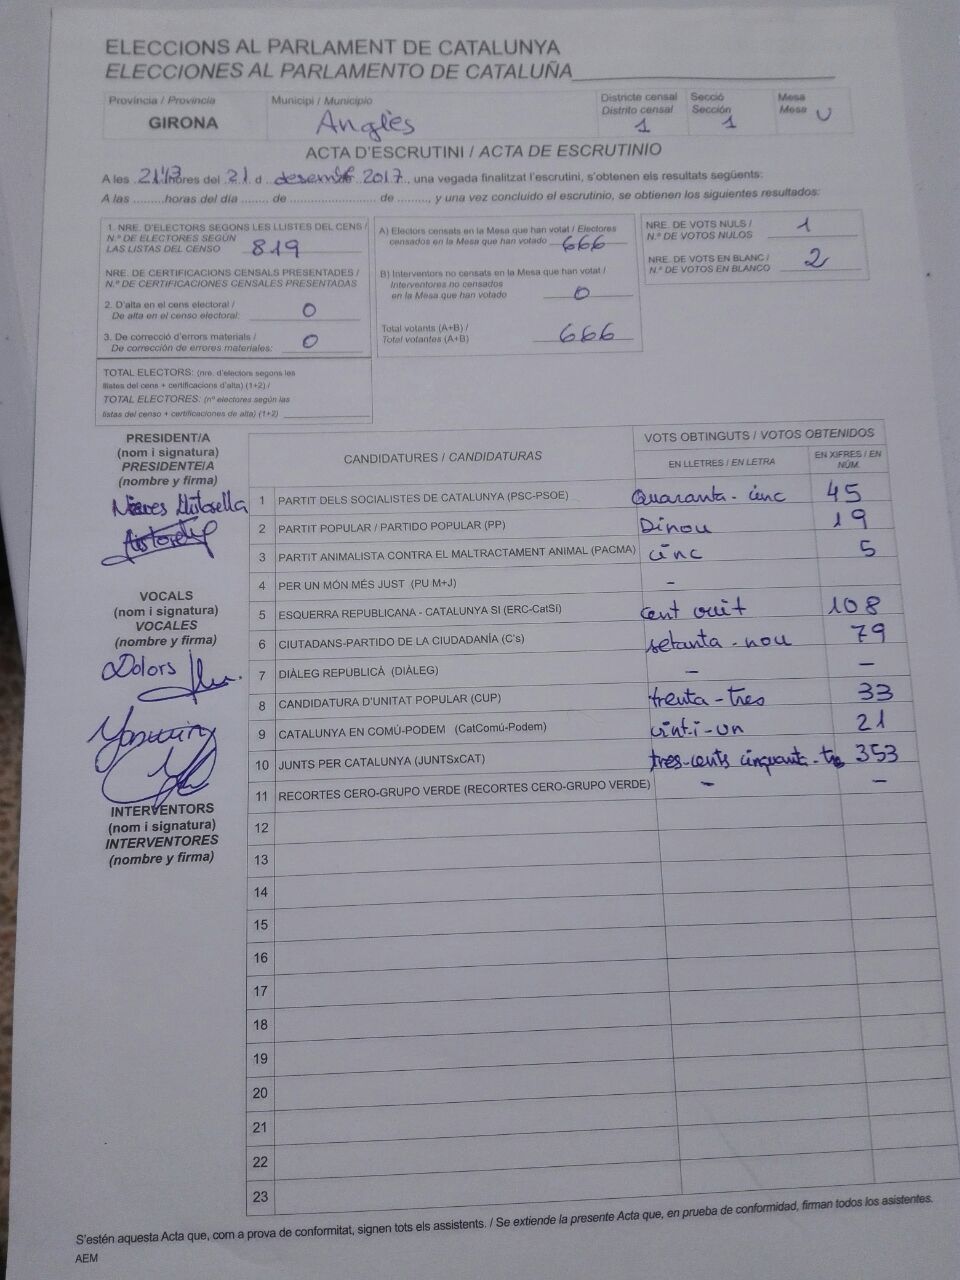 ELECCIONS AL PARLAMENT DE CATALUNYA
ELECCIONES AL PARLAMENTO DE CATALUÑA
Província / Provincia
GIRONA
Municipi / Municipio
Anglès
Districte censal
Distrito censal
1
Secció
Sección
1
Mesa
Mesa U
ACTA D'ESCRUTINI / ACTA DE ESCRUTINIO
A les 21'13 hores del 21 d desembre 2017, una vegada finalitzat l'escrutini, s'obtenen els resultats següents:
A las .........horas del día ........ de ......................... de ........, y una vez concluido el escrutinio, se obtienen los siguientes resultados:
1. NRE. D'ELECTORS SEGONS LES LLISTES DEL CENS /
N.º DE ELECTORES SEGÚN
LAS LISTAS DEL CENSO 819
NRE. DE CERTIFICACIONS CENSALS PRESENTADES /
N.º DE CERTIFICACIONES CENSALES PRESENTADAS
2. D'alta en el cens electoral /
De alta en el censo electoral: 0
3. De correcció d'errors materials /
De corrección de errores materiales: 0
TOTAL ELECTORS: (nre. d'electors segons les
llistes del cens + certificacions d'alta) (1+2) /
TOTAL ELECTORES: (nº electores según las
listas del censo + certificaciones de alta) (1+2)
A) Electors censats en la Mesa que han votat / Electores
censados en la Mesa que han votado 666
B) Interventors no censats en la Mesa que han votat /
Interventores no censados
en la Mesa que han votado 0
Total votants (A+B) /
Total votantes (A+B) 666
NRE. DE VOTS NULS /
N.º DE VOTOS NULOS 1
NRE. DE VOTS EN BLANC /
N.º DE VOTOS EN BLANCO 2
PRESIDENT/A
(nom i signatura)
PRESIDENTE/A
(nombre y firma)
VOCALS
(nom i signatura)
VOCALES
(nombre y firma)
Dolors
INTERVENTORS
(nom i signatura)
INTERVENTORES
(nombre y firma)
CANDIDATURES / CANDIDATURAS
VOTS OBTINGUTS / VOTOS OBTENIDOS
EN LLETRES / EN LETRA
EN XIFRES / EN NÚM.
1 PARTIT DELS SOCIALISTES DE CATALUNYA (PSC-PSOE) Quaranta-cinc 45
2 PARTIT POPULAR / PARTIDO POPULAR (PP) Dinou 19
3 PARTIT ANIMALISTA CONTRA EL MALTRACTAMENT ANIMAL (PACMA) cinc 5
4 PER UN MÓN MÉS JUST (PU M+J) -
5 ESQUERRA REPUBLICANA - CATALUNYA SI (ERC-CatSí) cent vuit 108
6 CIUTADANS-PARTIDO DE LA CIUDADANÍA (C's) setanta-nou 79
7 DIÀLEG REPUBLICÀ (DIÀLEG) - -
8 CANDIDATURA D'UNITAT POPULAR (CUP) trenta-tres 33
9 CATALUNYA EN COMÚ-PODEM (CatComú-Podem) vint-i-un 21
10 JUNTS PER CATALUNYA (JUNTSxCAT) tres-cents cinquanta-tres 353
11 RECORTES CERO-GRUPO VERDE (RECORTES CERO-GRUPO VERDE) - -
12
13
14
15
16
17
18
19
20
21
22
23
S'estén aquesta Acta que, com a prova de conformitat, signen tots els assistents. / Se extiende la presente Acta que, en prueba de conformidad, firman todos los asistentes.
AEM